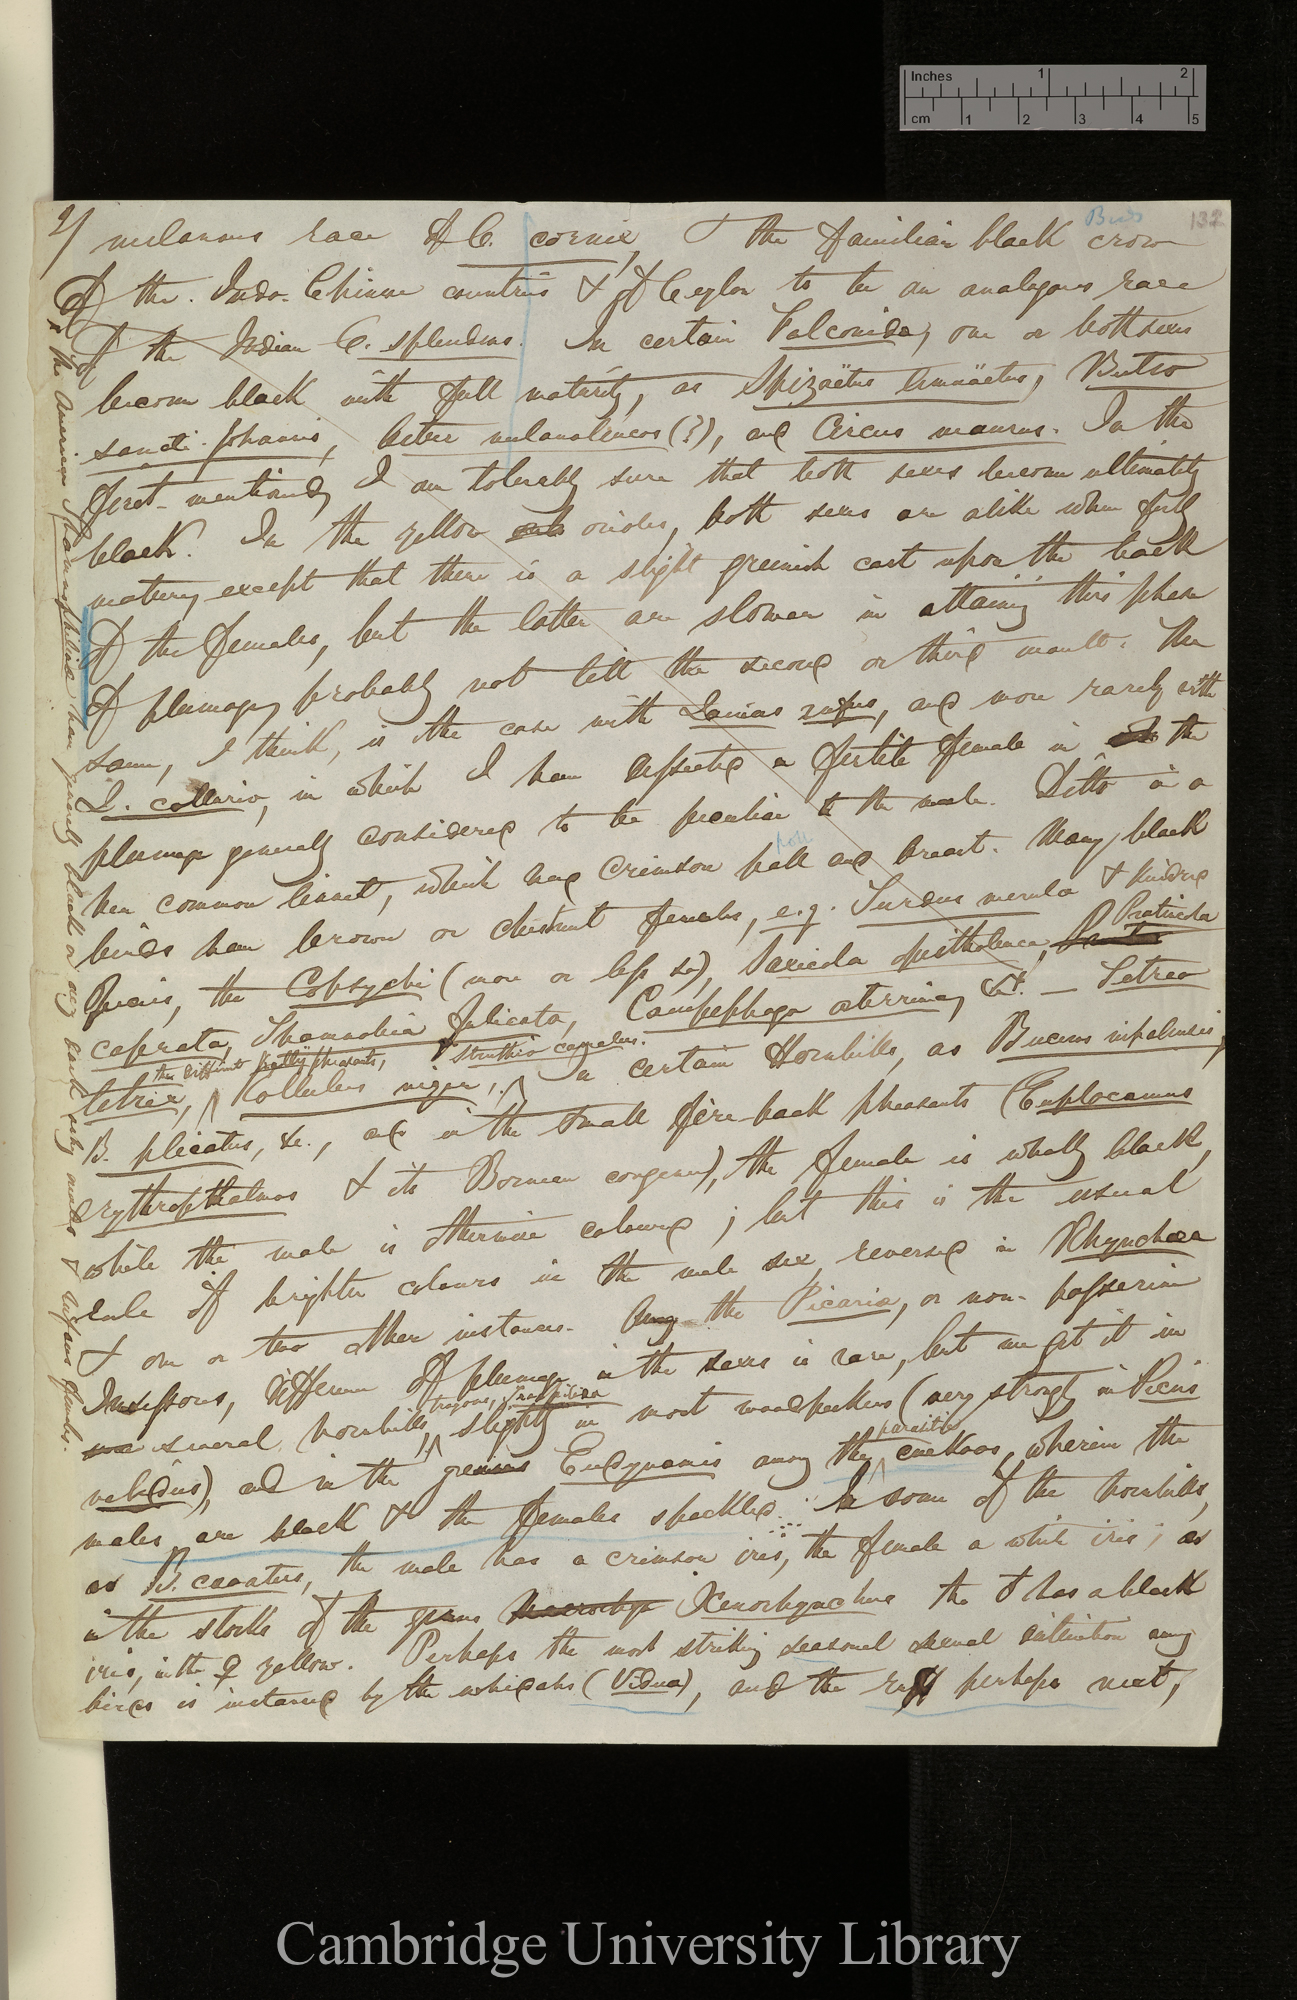 Inches 1 2
cm 1 2 3 4 5
Birds 132
2/ melanous race of C. cornix, & the familiar black crow
of the Indo-Chinese countries & of Ceylon to be an analogous race
of the Indian C. splendens. In certain Falconidæ, one or both sexes
become black with full maturity, as Spizaëtus limnäetus, Buteo
sancti-johannis, Astur melanoleucos (?), and Circus maurus. In the
first-mentioned, I am tolerably sure that both sexes become ultimately
black. In the yellow orioles, both sexes are alike when fully
mature, except that there is a slight greenish cast upon the back
of the females, but the latter are slower in attaining this phase
of plumage, probably not till the second or third moult. The
same, I think, is the case with Lanius rufus, and more rarely with
L. collurio, in which I have dissected a fertile female in the
plumage generally considered to be peculiar to the male. Ditto in a
poll
hen common linnet, which had crimson poll and breast. Many black
birds have brown or chestnut females, e.g. Turdus merula & kindred
species, the Copsychi (more or less so), Saxicola opistholeuca, Pratincola
caprata, Thamnobia fulicata, Campephaga aterrima, &c. — Tetrao
the different Kallij pheasants, Struthio camelus.
tetrix, Rollulus niger, In certain Hornbills, as Buceros nipalensis,
B. plicatus, &c., and in the small fire-back pheasants (Euplocamus
erythrophthalmos & its Bornean congener), the female is wholly black,
while the male is otherwise coloured; but this is the usual
rule of brighter colours in the male sex, reversed in Rhynchæa
& one or two other instances. Among the Picariæ, or non-passerine
Insessores, difference of plumage in the sexes is rare, but we get it in
trogons,
several hornbills, slightly in most woodpeckers (very strongly in Picus
parasitic
validus), and in the genus Eudynamis among the cuckoos, wherein the
males are black & the females speckled. In some of the hornbills,
as B. cavatus, the male has a crimson iris, the female a white iris; as
in the storks of the genus Xenorhynchus the ♂ has a black
iris, in the ♀ yellow. Perhaps the most striking seasonal sexual distinction among
birds is instanced by the whidahs (Vidua), and the ruff perhaps next,
x the American Thamnophilinæ have generally black or very dark ashy males & rufous females.
Cambridge University Library